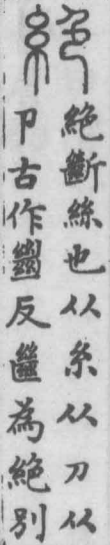 絕
絕斷絲也从糸从刀从
卩古作𢇍反㡭為絕別